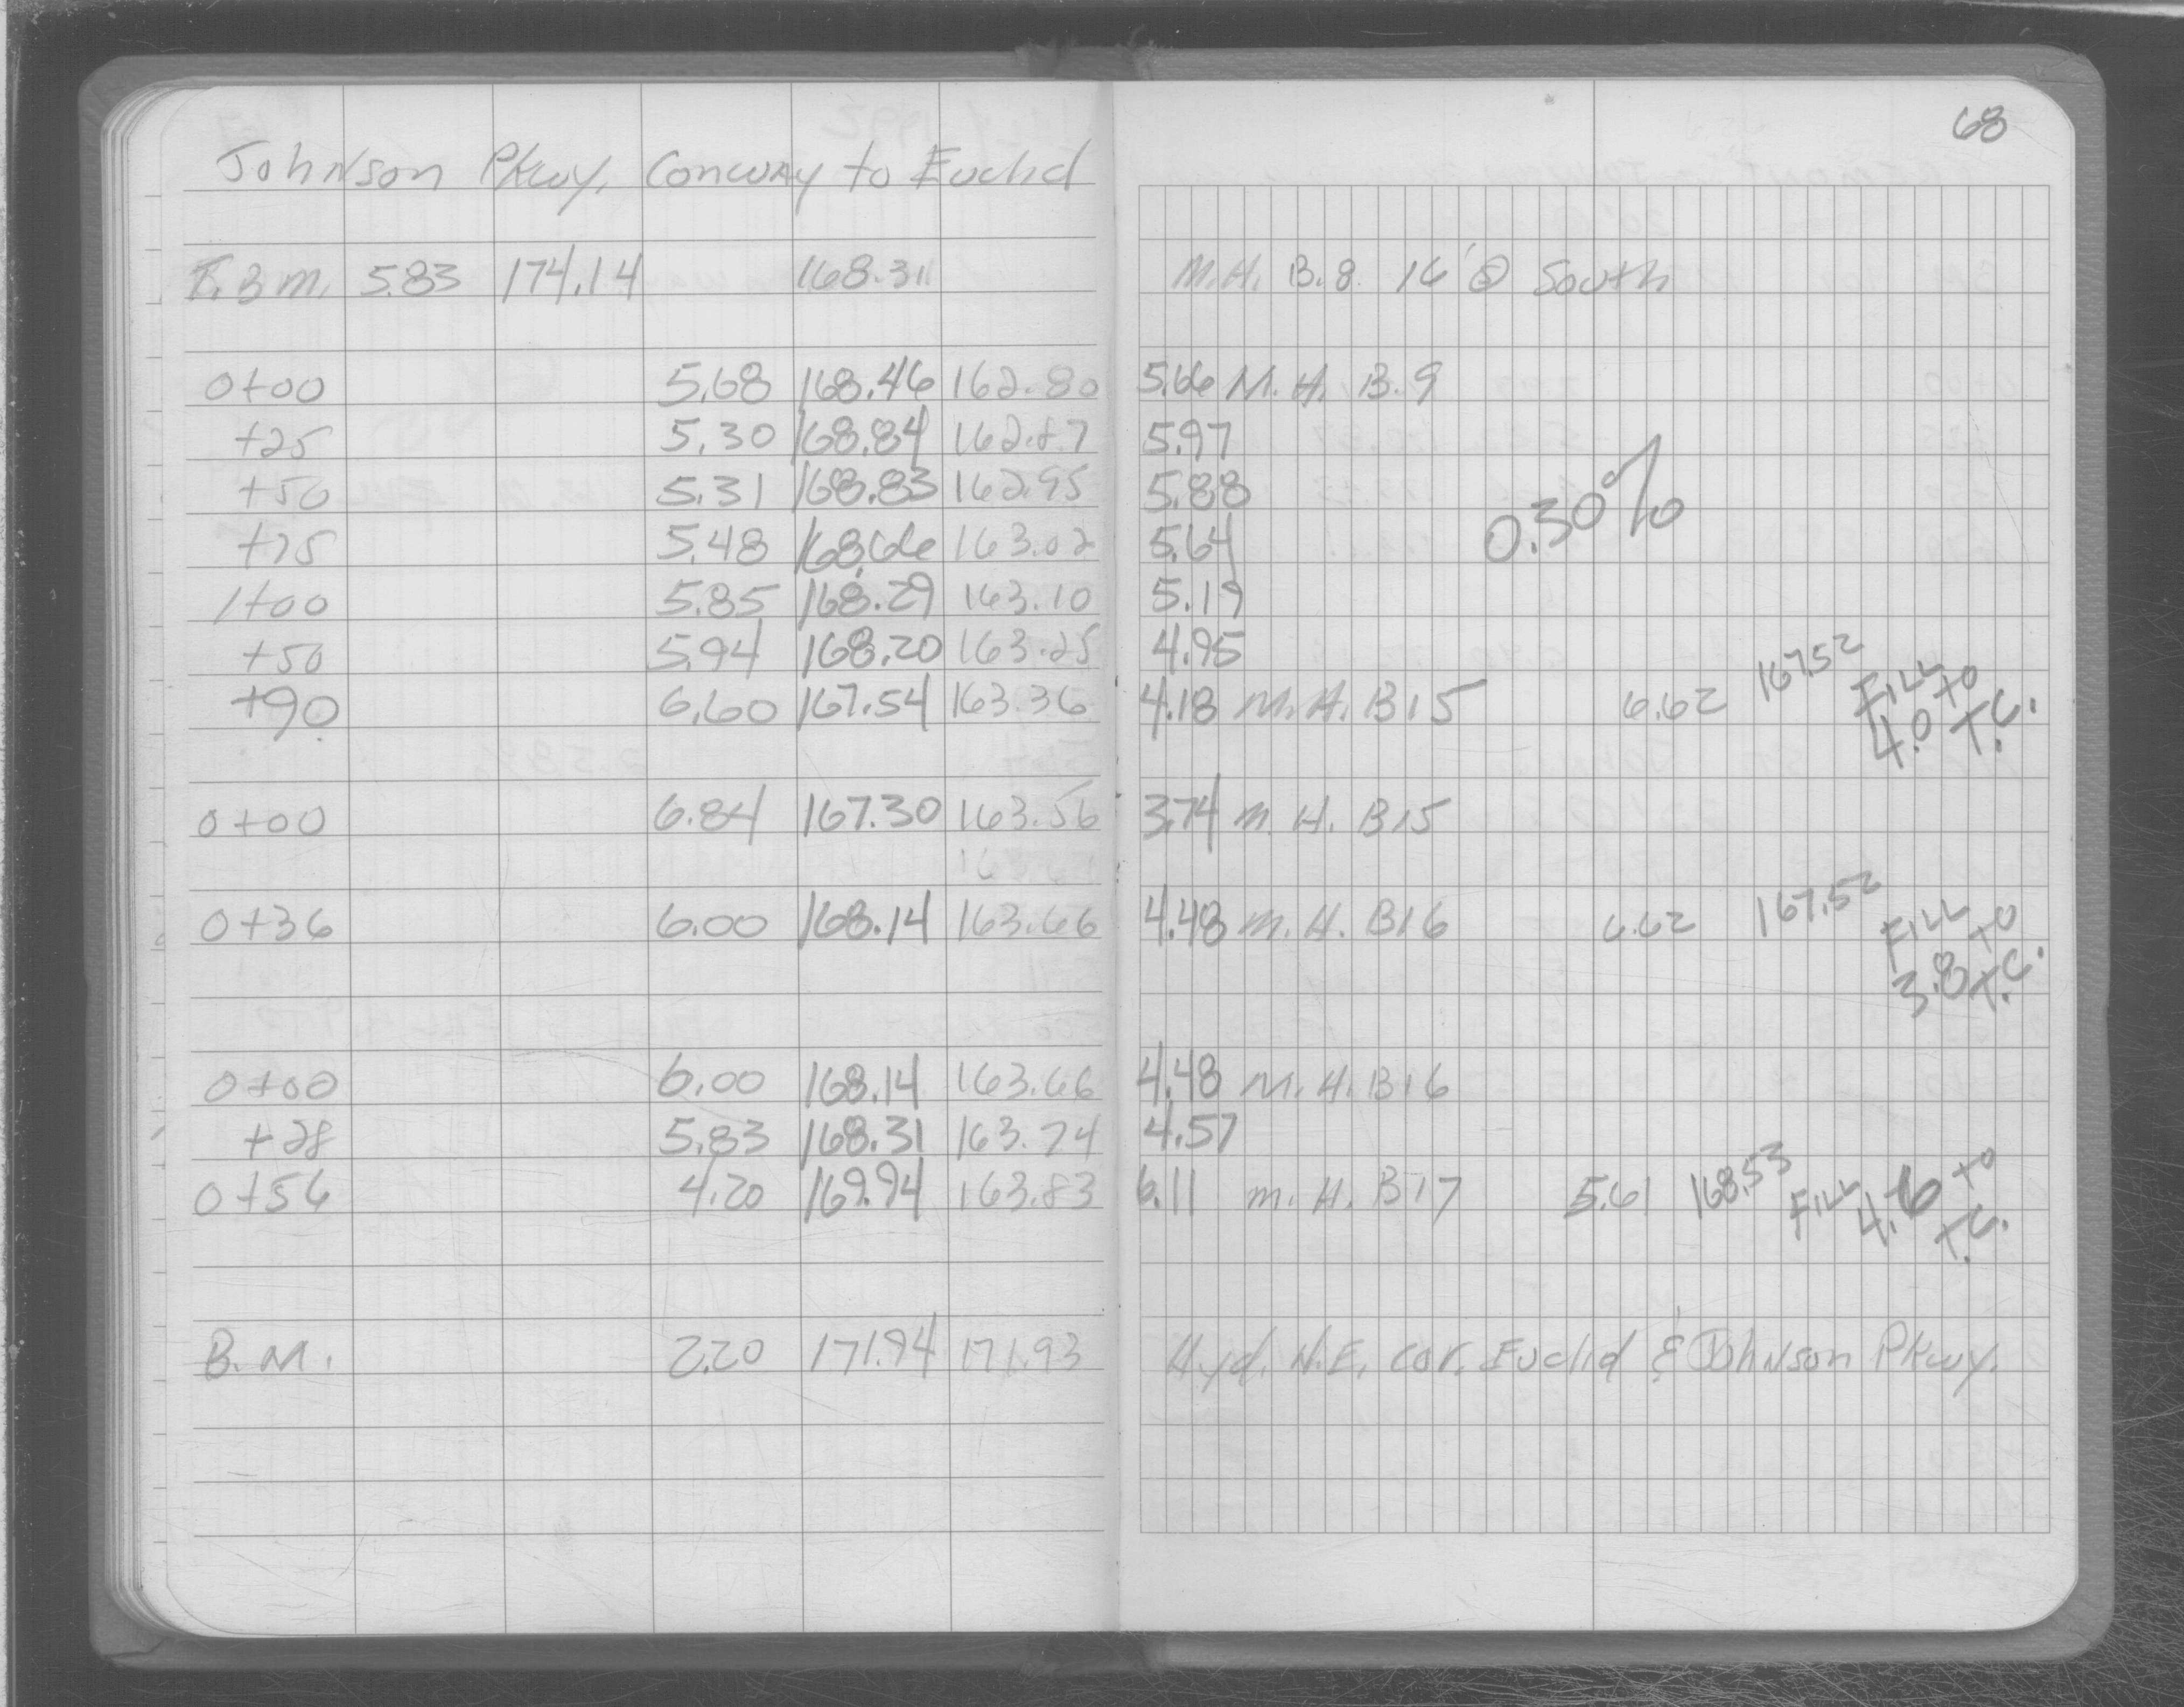 68
Johnson Pkwy. Conway to Euclid
T.B.M. 5.83 174.14 168.31 M.H. B.8. 16' @ South
0+00 5.68 168.46 162.80 5.66 M.H. B.9
+25 5.30 168.84 162.87 5.97
+50 5.31 168.83 162.95 5.88
0.30%
+75 5.48 168.66 163.02 5.64
1+00 5.85 168.29 163.10 5.19
+50 5.94 168.20 163.25 4.95
+90 6.60 167.54 163.36 4.18 M.H. B15 6.62 167.52 FILL 4.0 to T.C.
0+00 6.84 167.30 163.56 3.74 M.H. B15
0+36 6.00 168.14 163.66 4.48 M.H. B16 6.62 167.52 FILL 3.8 to T.C.
0+00 6.00 168.14 163.66 4.48 M.H. B16
+28 5.83 168.31 163.74 4.57
0+56 4.20 169.94 163.83 6.11 M.H. B17 5.61 168.53 FILL 4.6 to T.C.
B.M. 2.20 171.94 171.93 Hyd. N.E. cor. Euclid & Johnson Pkwy.